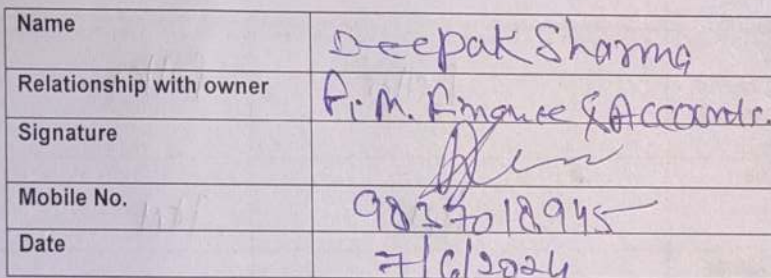 Name Deepak Sharma
Relationship with owner A.M. Finance & Accounts.
Signature
Mobile No. 9837018945
Date 7/6/2024